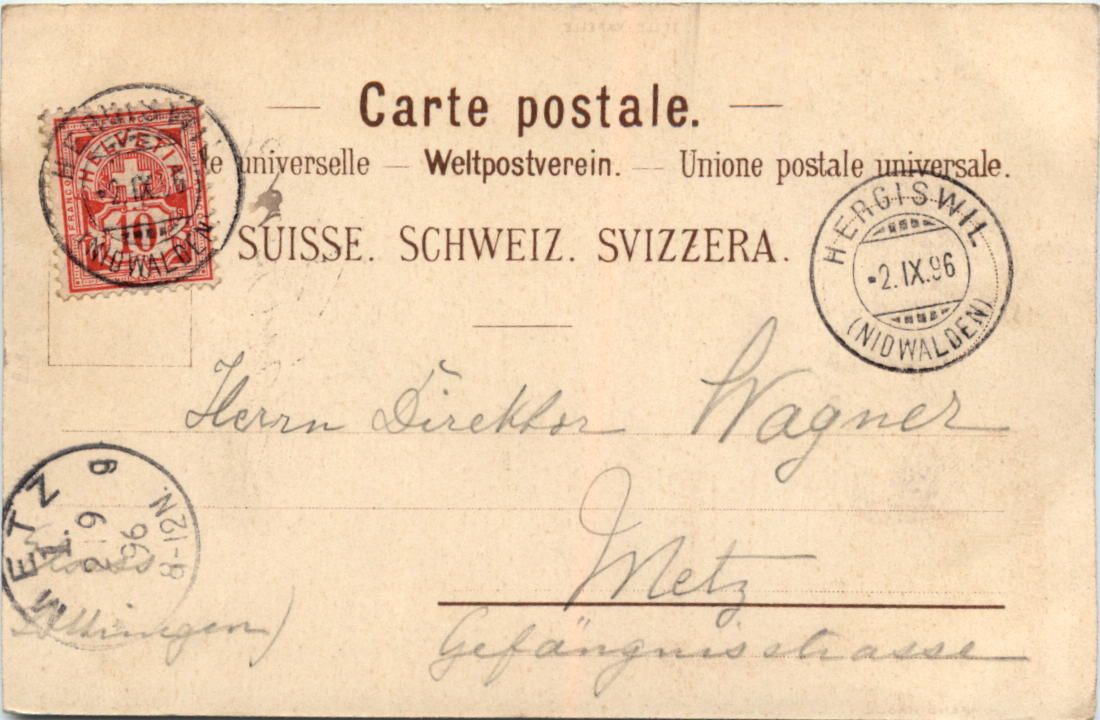 — Carte postale. —
le universelle — Weltpostverein. — Unione postale universale.
SUISSE. SCHWEIZ. SVIZZERA.
HELVETIA
FRANCO
10
(NIDWALDEN)
HERGISWIL
-2.IX.96
(NIDWALDEN)
Herrn Direktor Wagner
Metz
Gefängnisstrasse
METZ
1.
2 9
96
8-12N.
g